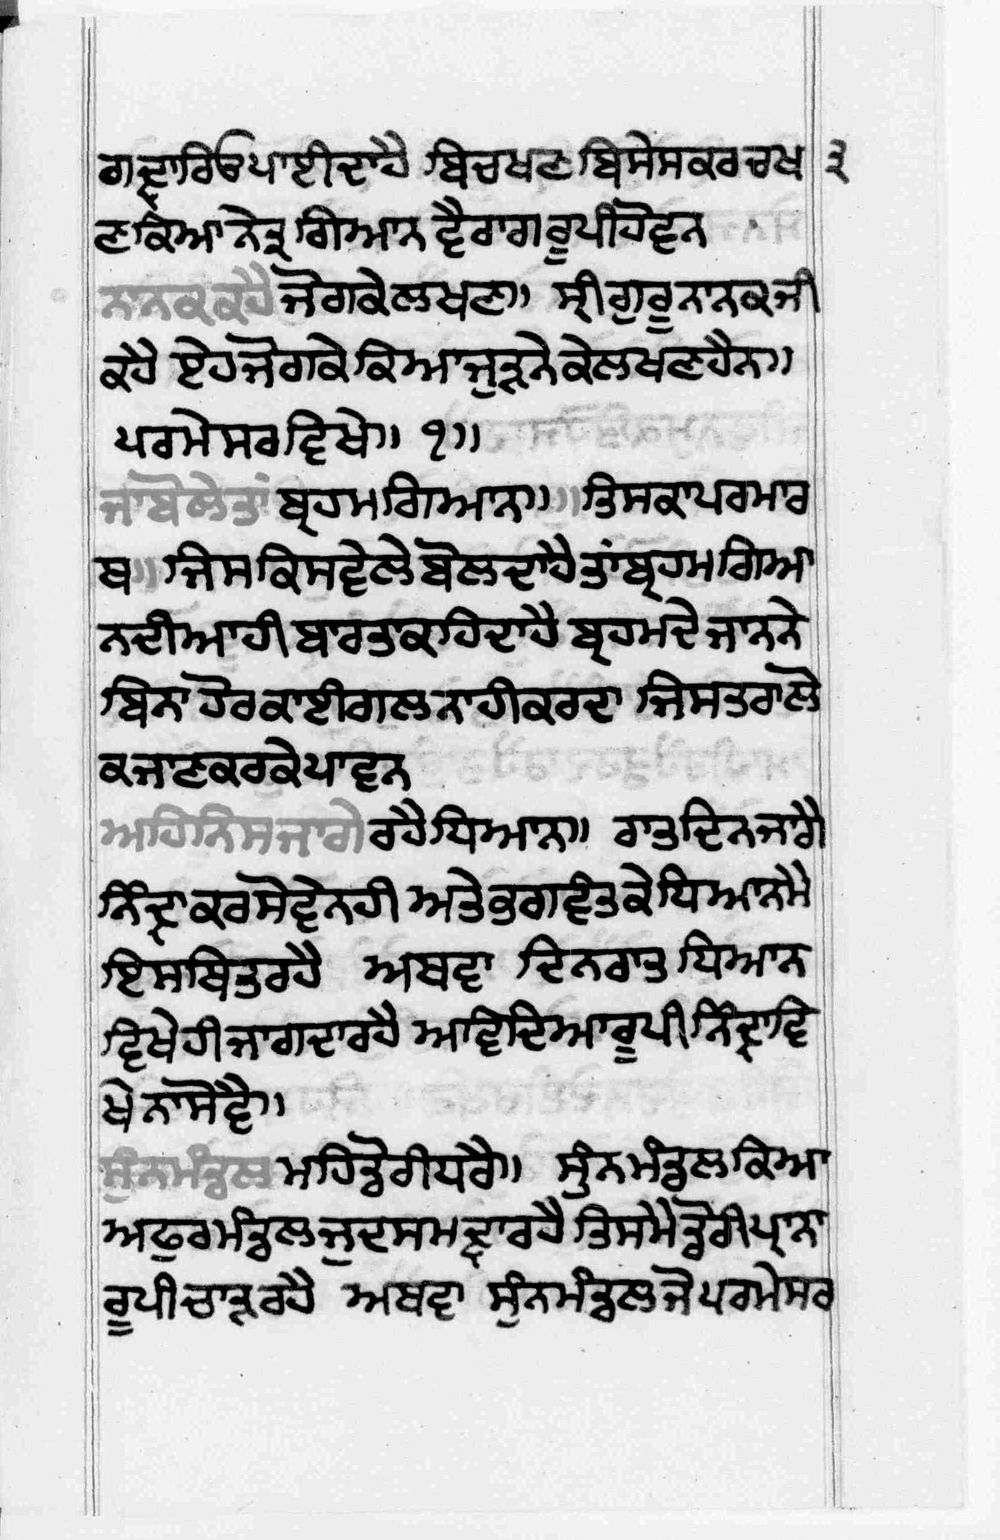 ਗਦ੍ਵਾਰਿਓਪਾਈਦਾਹੈ ਬਿਚਖਣ ਬਿਸੇਸਕਰਚਖ ੩
ਣਕਿਆ ਨੇਤ੍ਰ ਗਿਆਨ ਵੈਰਾਗਰੂਪੀਹੋਵਨ
ਨਾਨਕਕਹੈ ਜੋਗਕੇਲਖਣ॥ ਸ੍ਰੀਗੁਰੂਨਾਨਕਜੀ
ਕਹੈ ਏਹਜੋਗਕੇ ਕਿਆਜੁੜਨੇਕੇਲਖਣਹੈਨ॥
ਪਰਮੇਸਰਵਿਖੇ॥ ੧॥
ਜਾਬੋਲੇਤਾਂ ਬ੍ਰਹਮਗਿਆਨ॥ ਤਿਸਕਾਪਰਮਾਰ
ਥ॥ ਜਿਸਕਿਸਵੇਲੇਬੋਲਦਾਹੈਤਾਂਬ੍ਰਹਮਗਿਆ
ਨਦੀਆਹੀਬਾਰਤਾਕਹਿਦਾਹੈ ਬ੍ਰਹਮਦੇਜਾਨਨੇ
ਬਿਨਾ ਹੋਰਕਾਈਗਲਨਾਹੀਕਰਦਾ ਜਿਸਤਰਾਲੋ
ਕਜਾਣਕਰਕੇਪਾਵਨ
ਅਹਿਨਿਸਜਾਗੇ ਰਹੈਧਿਆਨ॥ ਰਾਤਦਿਨਜਾਗੈ
ਨਿੰਦ੍ਰਾਕਰਸੋਵੇਨਹੀ ਅਤੇਭਗਵੰਤਕੇਧਿਆਨਮੈ
ਇਸਥਿਤਰਹੈ ਅਥਵਾ ਦਿਨਰਾਤਧਿਆਨ
ਵਿਖੇਹੀਜਾਗਦਾਰਹੈ ਆਵਿਦਿਆਰੂਪੀਨਿੰਦ੍ਰਾਵਿ
ਖੇਨਾਸੋਵੈ॥
ਸੁੰਨਮੰਡਲ ਮਹਿਡੋਰੀਧਰੈ॥ ਸੁੰਨਮੰਡਲਕਿਆ
ਅਫੁਰਮੰਡਲਜੁਦਸਮਦ੍ਵਾਰਹੈਤਿਸਮੈਡੋਰੀਪ੍ਰਾਨਾ
ਰੂਪੀਚਾੜਰਹੈ ਅਥਵਾ ਸੁੰਨਮੰਡਲਜੋਪਰਮੇਸਰ